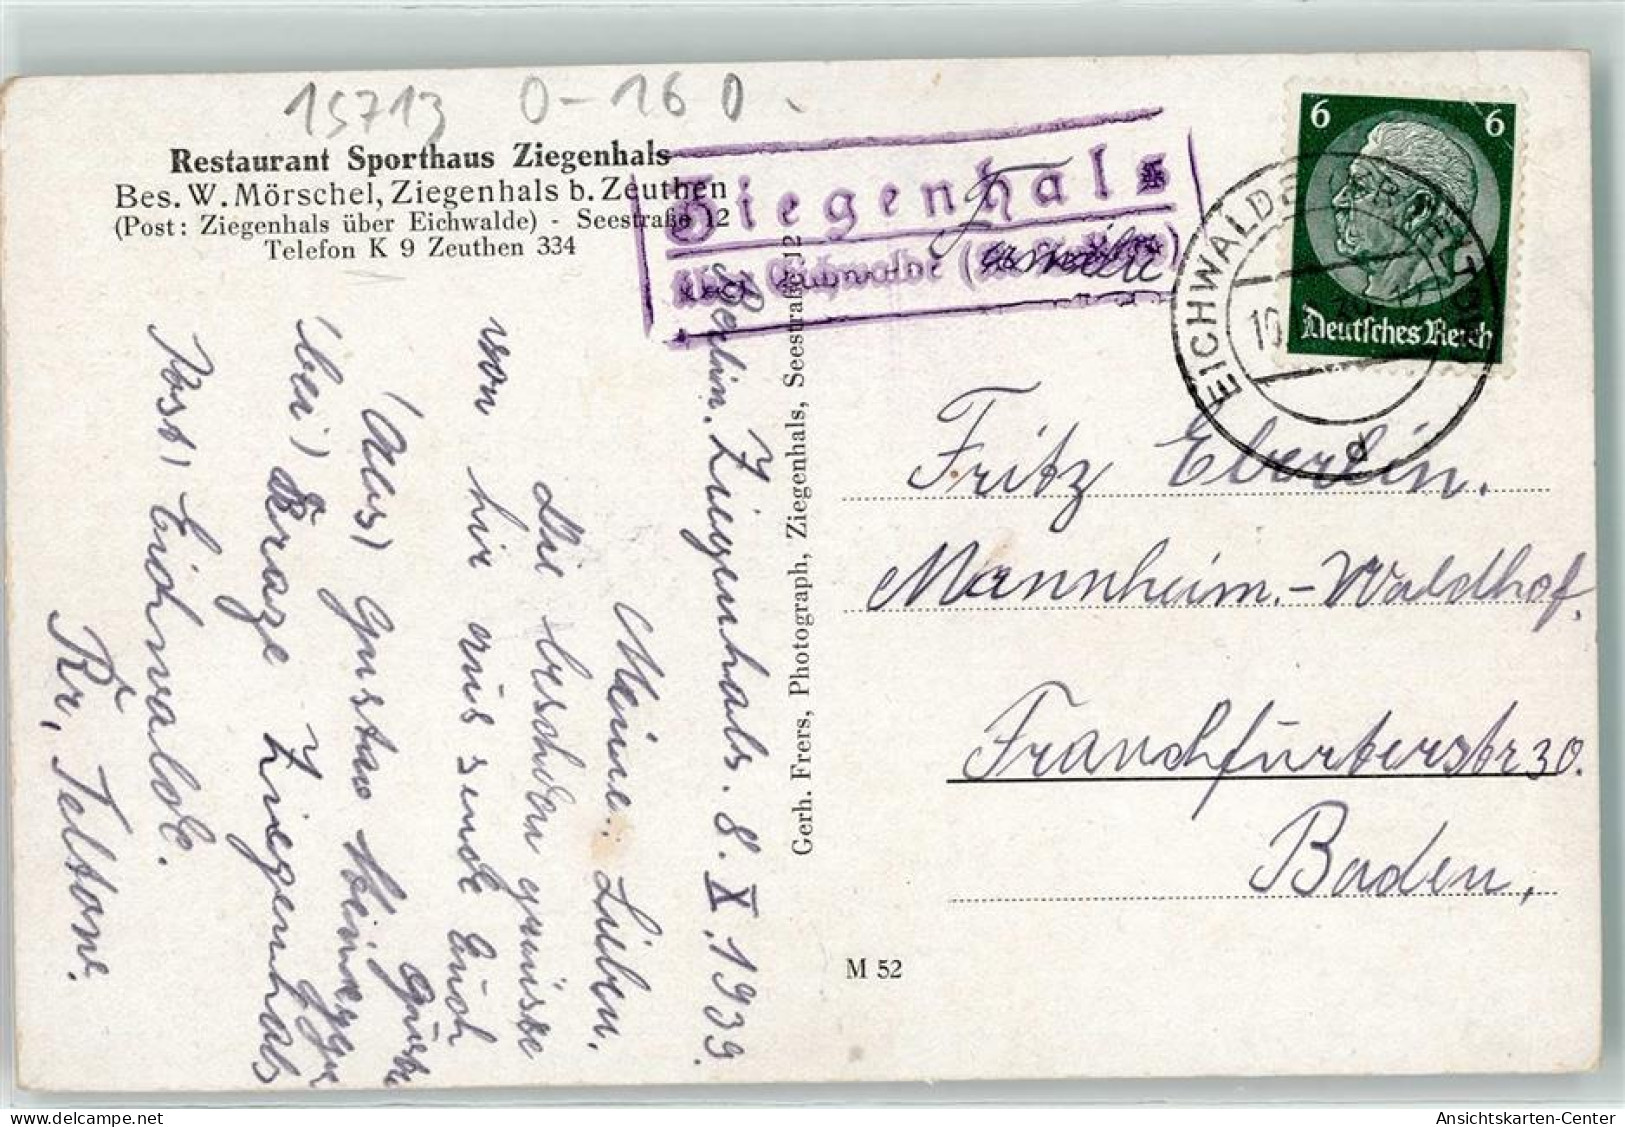 15713 0-160
Restaurant Sporthaus Ziegenhals
Bes. W. Mörschel, Ziegenhals b. Zeuthen
(Post: Ziegenhals über Eichwalde) - Seestraße 12
Telefon K 9 Zeuthen 334
Ziegenhals
über Eichwalde
6 6
Deutsches Reich
EICHWALDE
10
d
Familie
Fritz Eberlin.
Mannheim.-Waldhof.
Franchfurterstr 30.
Baden,
M 52
Gerh. Frers, Photograph, Ziegenhals, Seestraße 12
Berlin. Ziegenhals. 8. X. 1939.
Meine. Lieben.
Die herzlichen grüsse
von hir aus sende Euch
Gustav
(Aus) Gustav
bei) Ziegenhals
Post, Eichwalde.
Kr, Teltow.
Ansichtskarten-Center